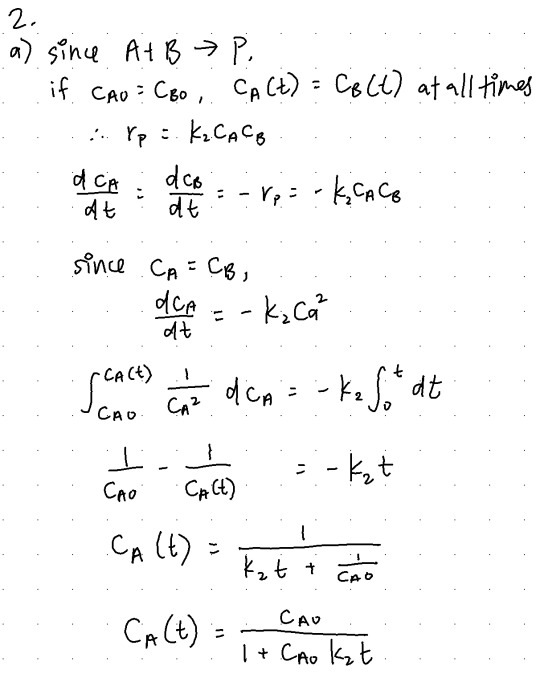 2.
a) since A + B → P,
if C_A0 = C_B0, C_A(t) = C_B(t) at all times
∴ r_p = k_2 C_A C_B
dC_A/dt = dC_B/dt = - r_p = - k_2 C_A C_B
since C_A = C_B,
dC_A/dt = - k_2 Ca^2
∫_{C_A0}^{C_A(t)} 1/C_A^2 dC_A = - k_2 ∫_0^t dt
1/C_A0 - 1/C_A(t) = - k_2 t
C_A(t) = 1/(k_2 t + 1/C_A0)
C_A(t) = C_A0/(1 + C_A0 k_2 t)